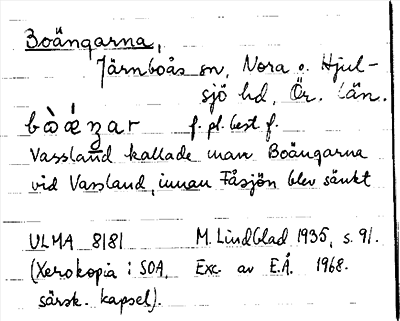 Boängarna,
Järnboås sn, Nora o. Hjul-
sjö hd, Ör. län.
bὼǽŋar f. pl. best. f.
Vassland kallade man Boängarna
vid Vassland, innan Fåsjön blev sänkt
ULMA 8181 M. Lindblad 1935, s. 91.
(Xerokopia i SOA, Exc. av E.Å. 1968.
särsk. kapsel).